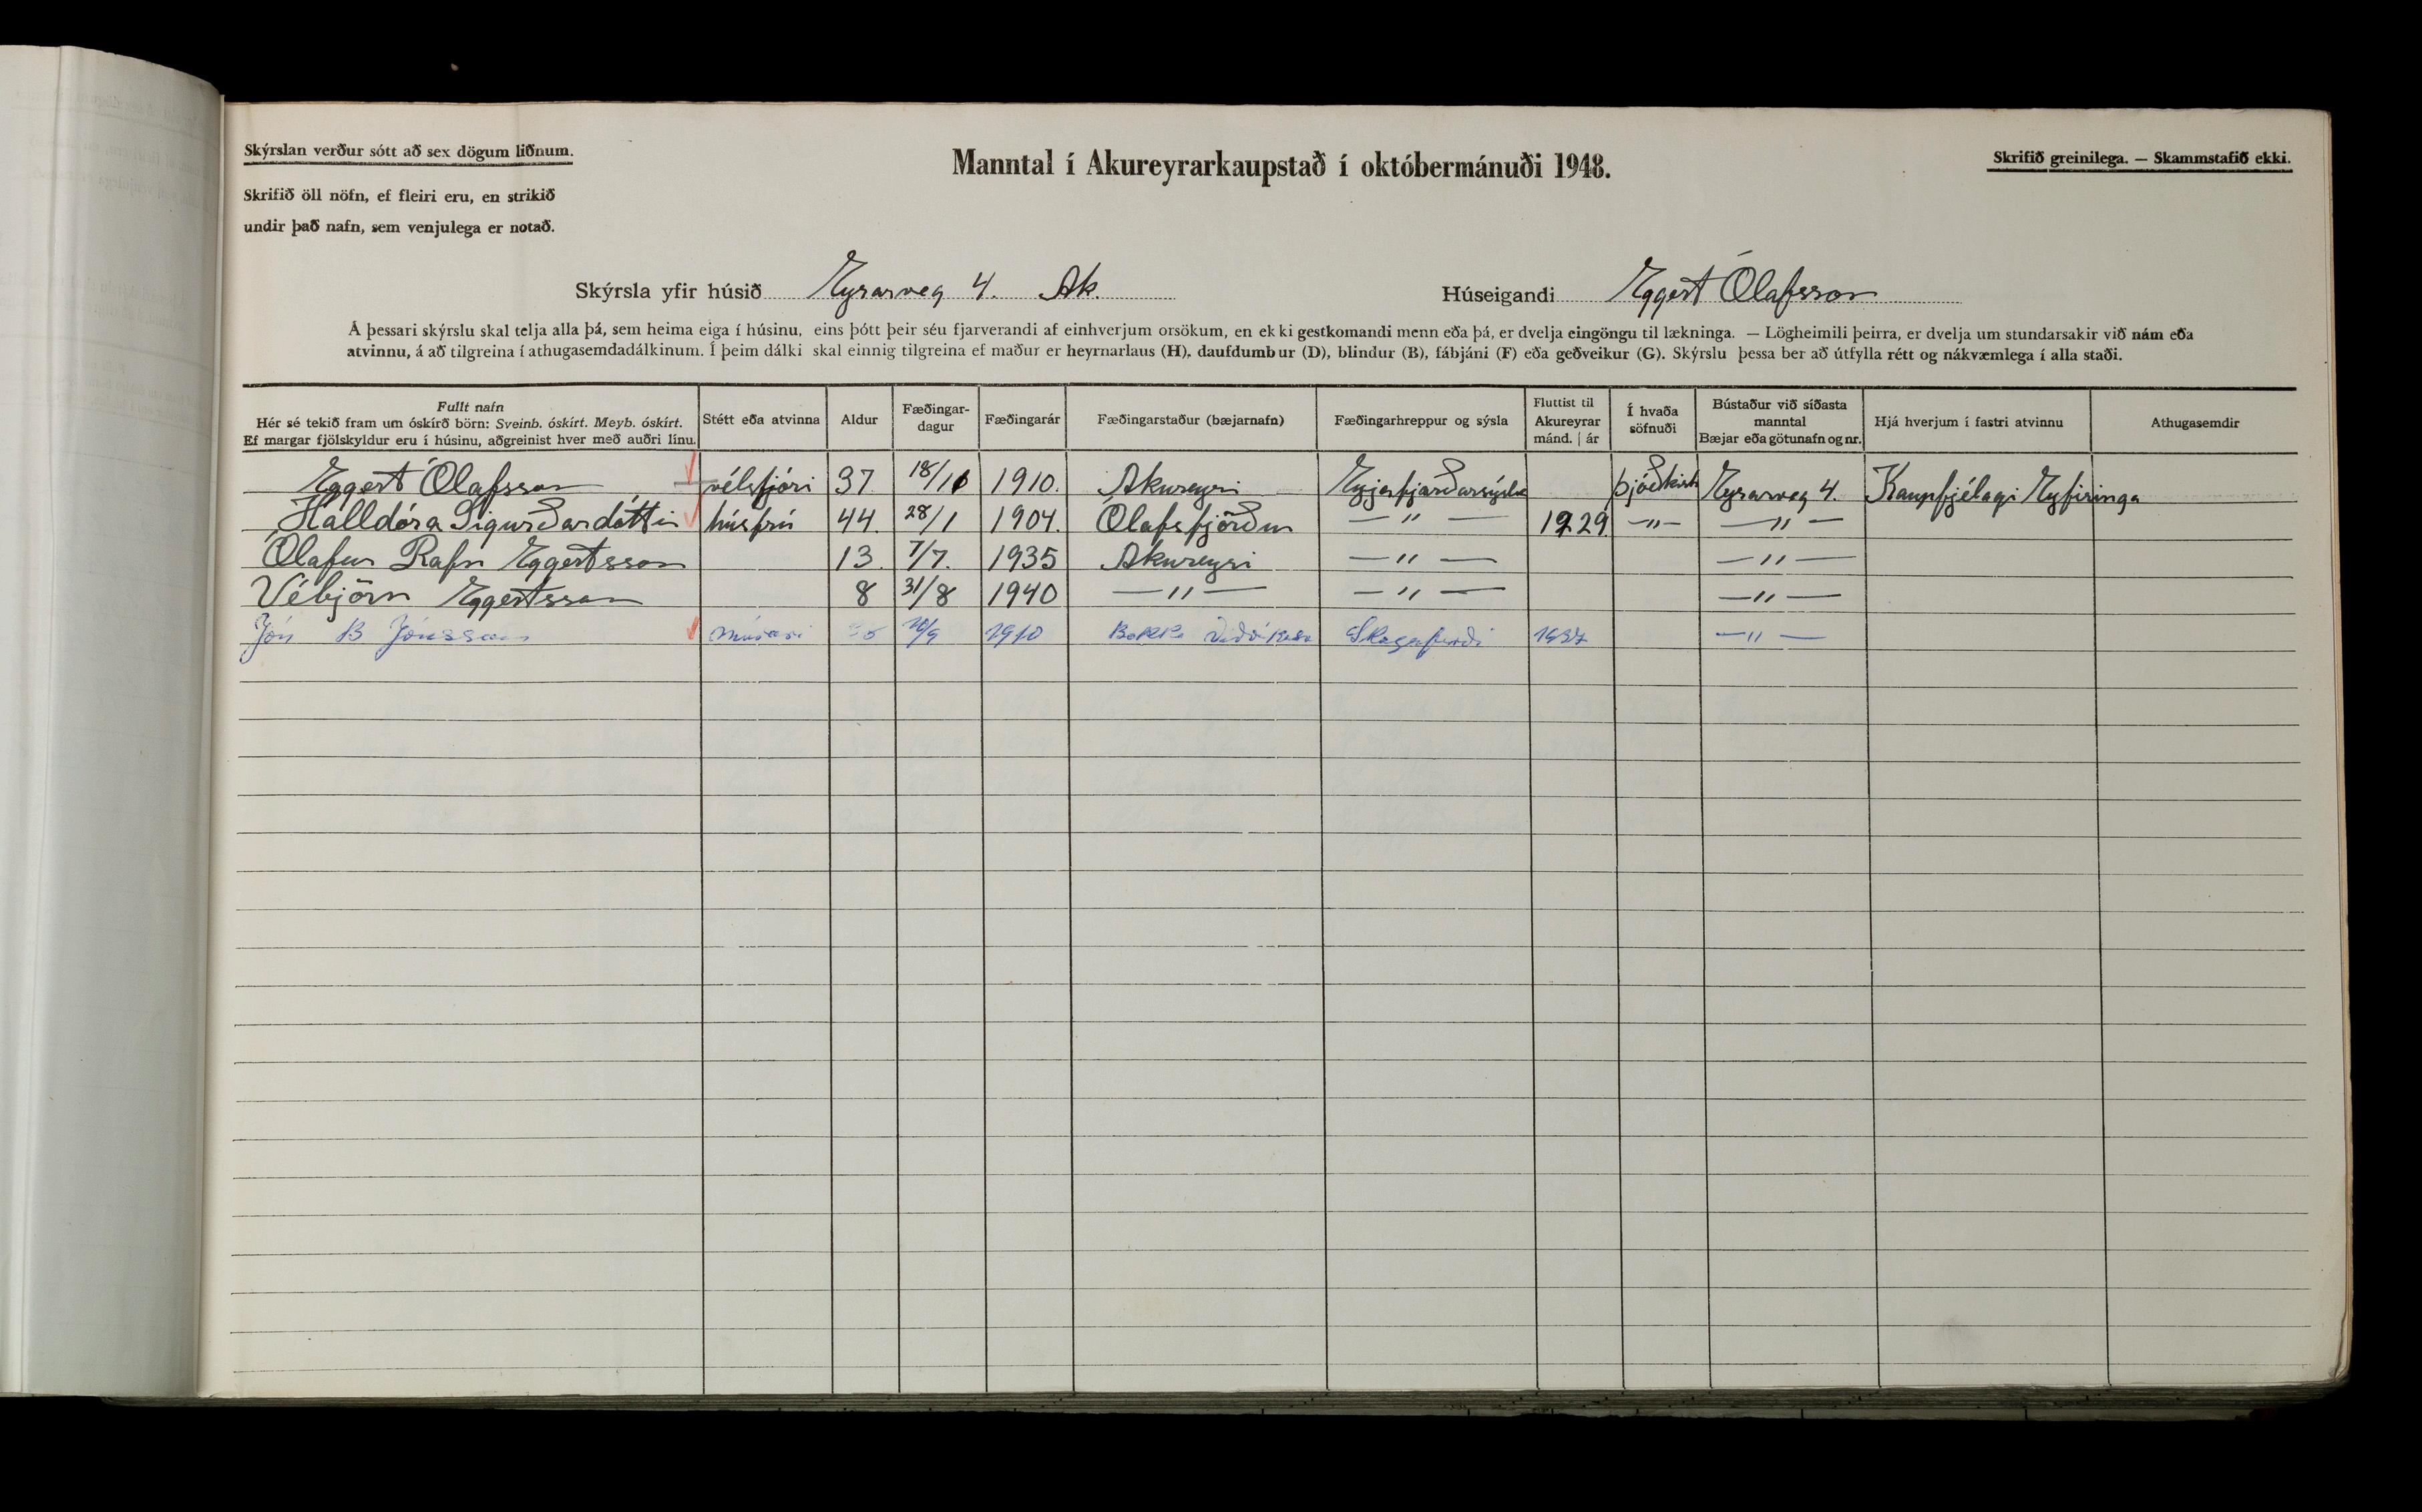 Skýrslan verður sótt að sex dögum liðnum.
Skrifið öll nöfn, ef fleiri eru, en strikið
undir það nafn, sem venjulega er notað.
Manntal í Akureyrarkaupstað í októbermánuði 1948.
Skrifið greinilega. — Skammstafið ekki.
Skýrsla yfir húsið Eyrarveg 4. Ak.
Húseigandi Eggert Ólafsson
Á þessari skýrslu skal telja alla þá, sem heima eiga í húsinu, eins þótt þeir séu fjarverandi af einhverjum orsökum, en ekki gestkomandi menn eða þá, er dvelja eingöngu til lækninga. — Lögheimili þeirra, er dvelja um stundarsakir við nám eða
atvinnu, á að tilgreina í athugasemdadálkinum. Í þeim dálki skal einnig tilgreina ef maður er heyrnarlaus (H), daufdumbur (D), blindur (B), fábjáni (F) eða geðveikur (G). Skýrslu þessa ber að útfylla rétt og nákvæmlega í alla staði.
Fullt nafn
Hér sé tekið fram um óskírð börn: Sveinb. óskírt. Meyb. óskírt.
Ef margar fjölskyldur eru í húsinu, aðgreinist hver með auðri línu.
Stétt eða atvinna
Aldur
Fæðingar-
dagur
Fæðingarár
Fæðingarstaður (bæjarnafn)
Fæðingarhreppur og sýsla
Fluttist til
Akureyrar
mánd. | ár
Í hvaða
söfnuði
Bústaður við síðasta
manntal
Bæjar eða götunafn og nr.
Hjá hverjum í fastri atvinnu
Athugasemdir
Eggert Ólafsson vélstjóri 37 18/10 1910. Akureyri Eyjafjarðarsýsla þjóðkirk Eyrarveg 4. Kaupfjélagi Eyfiringa
Halldóra Sigurðardóttir húsfrú 44. 28/1 1904. Ólafsfjörður — " — 1929 — " — — " —
Ólafur Rafn Eggertsson 13. 7/7. 1935 Akureyri — " — — " —
Vébjörn Eggertsson 8 31/8 1940 — " — — " — — " —
Jón B Jónsson múrari 1910 Bakka Skagafirði — " —